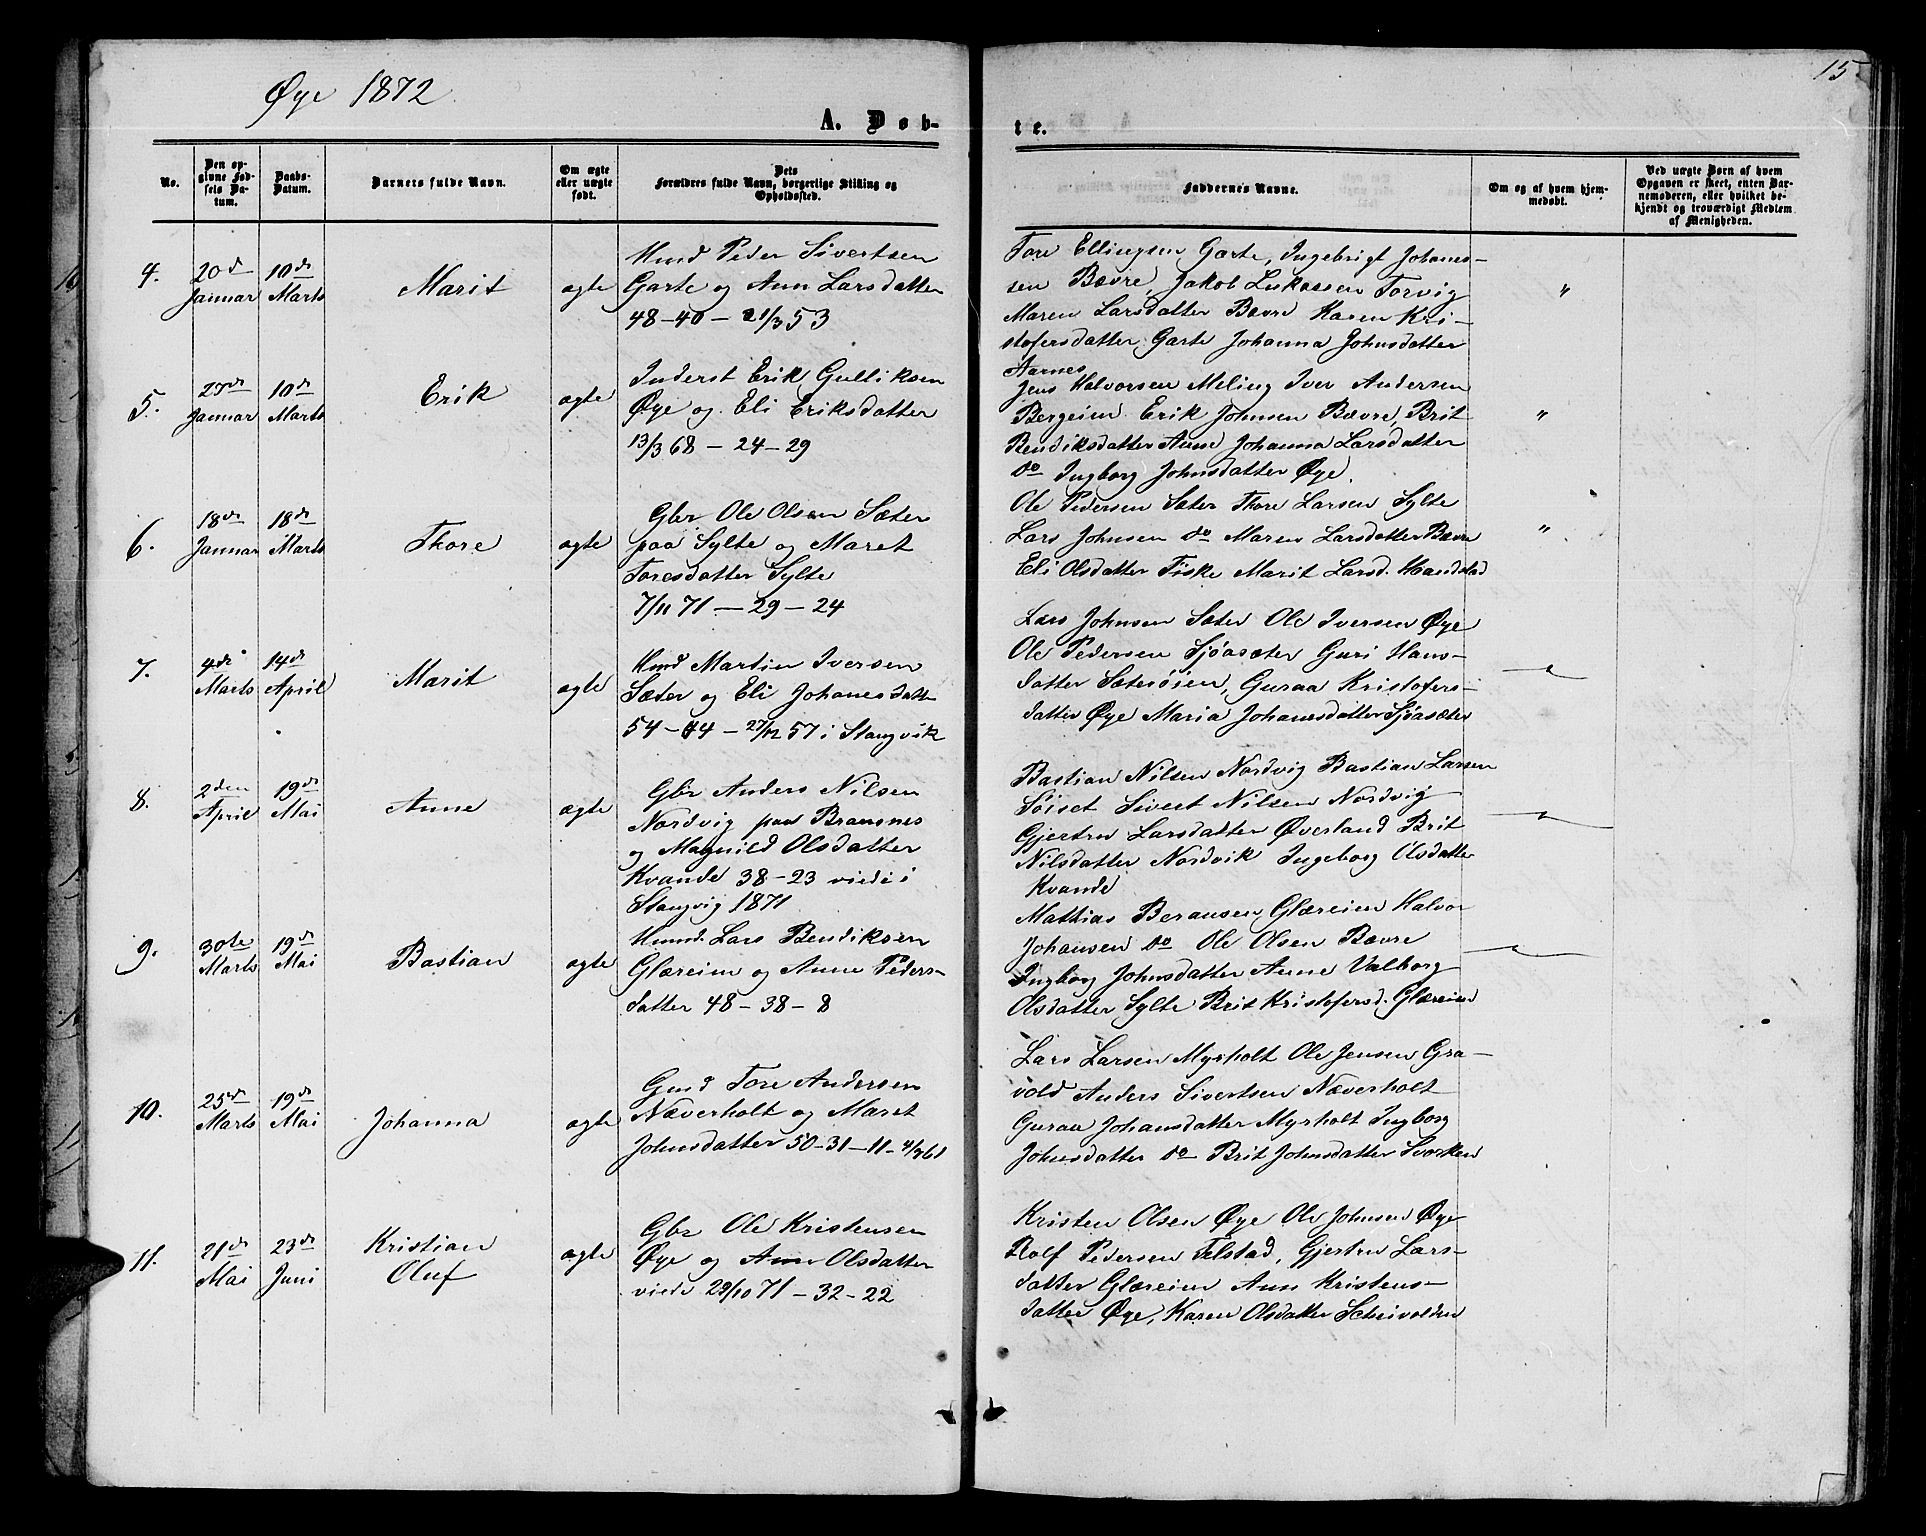 Øye 1872
15
A. Døb-
te.
No.
Den op-
givne Fød-
sels Da-
tum.
Daabs-
Datum.
Barnets fulde Navn.
Om ægte
eller uægte
født.
Dets
Forældres fulde Navn, borgerlige Stilling og
Opholdssted.
Faddernes Navne.
Om og af hvem hjem-
medøbt.
Ved uægte Børn af hvem
Opgaven er skeet, enten Bar-
nemoderen, eller hvilket be-
kjendt og troværdigt Medlem
af Menigheden.
4.
20de
Januar
10de
Marts
Marit
ægte
Hmd Peder Sivertsen
Garte og Ann Larsdatter
48-40- 21/3 53
Tore Ellingsen Garte, Ingebrigt Johanes-
sen Bævre, Jakob Lukassen Torvig
Maren Larsdatter Bævre Karen Kri-
stofersdatter Garte Johanna Johnsdatter
Aarnes
"
5.
27de
Januar
10de
Marts
Erik
ægte
Inderst Erik Gulliksen
Øye og Eli Eriksdatter
13/3 68 - 24 - 29
Jens Halvorsen Meling Iver Andersen
Bergeim Erik Johnsen Bævre, Brit
Bendiksdatter Aune Johanna Larsdatter
do Ingborg Johnsdatter Øye.
"
6.
18de
Januar
18de
Marts
Thore
ægte
Gbr Ole Olsen Sæter
paa Sylte og Maret
Toresdatter Sylte
7/11 71 - 29 - 24
Ole Pedersen Sæter Thore Larsen Sylte
Lars Johnsen do Maren Larsdatter Bævre
Eli Olsdatter Fiske Marit Larsd. Haandstad
"
7.
4de
Marts
14de
April
Marit
ægte
Hmd Martin Iversen
Sæter og Eli Johanesdatt
54-44- 27/12 57 i Stangvik
Lars Johnsen Sæter Ole Iversen Øye
Ole Pedersen Sjøasæter Guri Hans-
datter Sæterøien, Guraa Kristofers-
datter Øye Maria Johannesdatter Sjøasæter
8.
2den
April
19de
Mai
Anne
ægte
Gbr Anders Nilsen
Nordvig paa Bransnes
og Magnild Olsdatter
Kvande 38-23 viede i
Stangvig 1871
Bastian Nilsen Nordvig Bastian Larsen
Søiset Sivert Nilsen Nordvig
Gjertru Larsdatter Øverland Brit
Nilsdatter Nordvik Ingeborg Olsdatter
Kvande
9.
30te
Marts
19de
Mai
Bastian
ægte
Hmd. Lars Bendiksen
Glæreim og Anne Peders-
datter 48-38-8
Mathias Beransen Glæreim Halvor
Johansen do Ole Olsen Bævre
Ingborg Johnsdatter Aune Valborg
Olsdatter Sylte Brit Kristofersd. Glæreim
10.
25de
Marts
19de
Mai
Johanna
ægte
Gmd Tore Andersen
Næverholt og Maret
Johnsdatter 50-31-11-4/7 61
Lars Larsen Myrholt Ole Jensen Gra-
vold Anders Sivertsen Næverholt
Guraa Johansdatter Myrholt Ingborg
Johnsdatter do Brit Johnsdatter Svorken
11.
21de
Mai
23de
Juni
Kristian
Oluf
ægte
Gbr Ole Kristensen
Øye og Ann Olsdatter
viede 29/10 71 - 32-22
Kristen Olsen Øye Ole Johnsen Øye
Rolf Pedersen Telstad, Gjertru Lars-
datter Glæreim Ann Kristens-
datter Øye, Karen Olsdatter Scheivolden